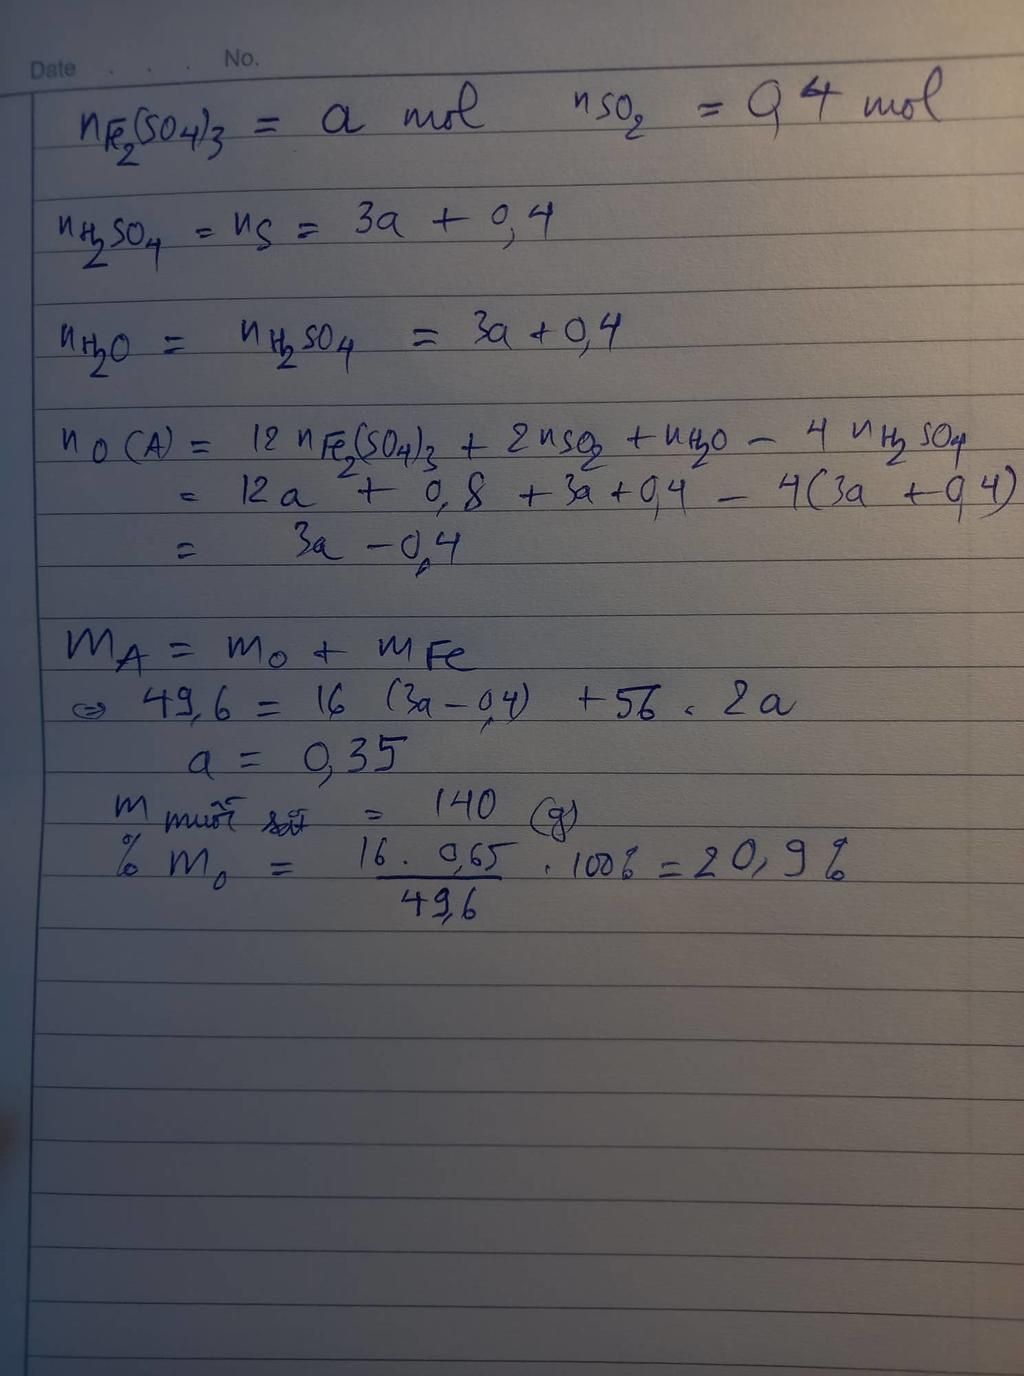 Date . . . No.
nFe2(SO4)3 = a mol nSO2 = 0,4 mol
nH2SO4 = nS = 3a + 0,4
nH2O = nH2SO4 = 3a + 0,4
nO(A) = 12 nFe2(SO4)3 + 2nSO2 + nH2O - 4 nH2SO4
= 12a + 0,8 + 3a + 0,4 - 4(3a + 0,4)
= 3a - 0,4
mA = mO + mFe
⇔ 49,6 = 16 (3a - 0,4) + 56 . 2a
a = 0,35
m muối sắt = 140 (g)
% mO = 16 . 0,65 / 49,6 . 100% = 20,9%